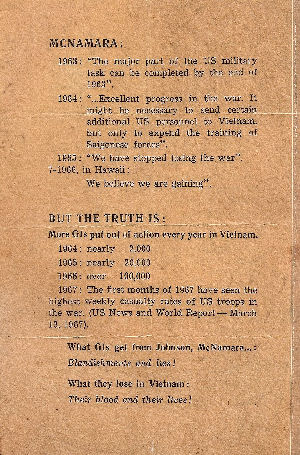 MCNAMARA:
1963: "The major part of the US military
task can be completed by the end of
1965".
1964: "...Excellent progress in the war. It
might be necessary to send certain
additional US personnel to Vietnam
but only to expend the training of
Saigonese forces".
1965: "We have stopped losing the war".
7-1966, in Hawaii:
We believe we are gaining".
BUT THE TRUTH IS:
More GIs put out of action every year in Vietnam.
1964: nearly
1965: nearly 20,000
1966: over 100,000
1967: The first months of 1967 have seen the
highest weekly casualty rates of US troops in
the war. (US News and World Report — March
1967).
What GIs get from Johnson, McNamara...:
Blandishments and lies!
What they lose in Vietnam:
Their blood and their lives!